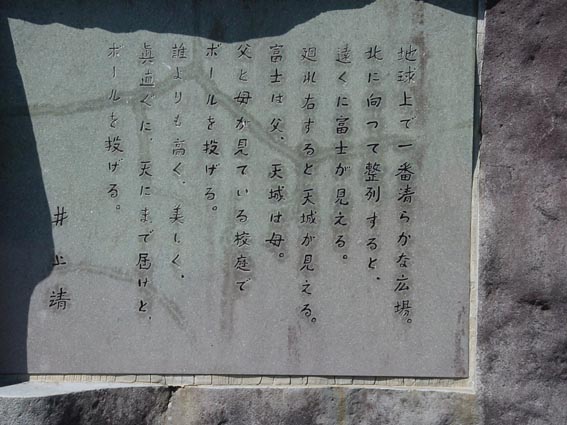 地球上で一番清らかな広場。
北に向って整列すると、
遠くに富士が見える。
廻れ右すると天城が見える。
富士は父、天城は母。
父と母が見ている校庭で
ボールを投げる。
誰よりも高く、美しく、
真直ぐに、天にまで届けと、
ボールを投げる。
井上靖